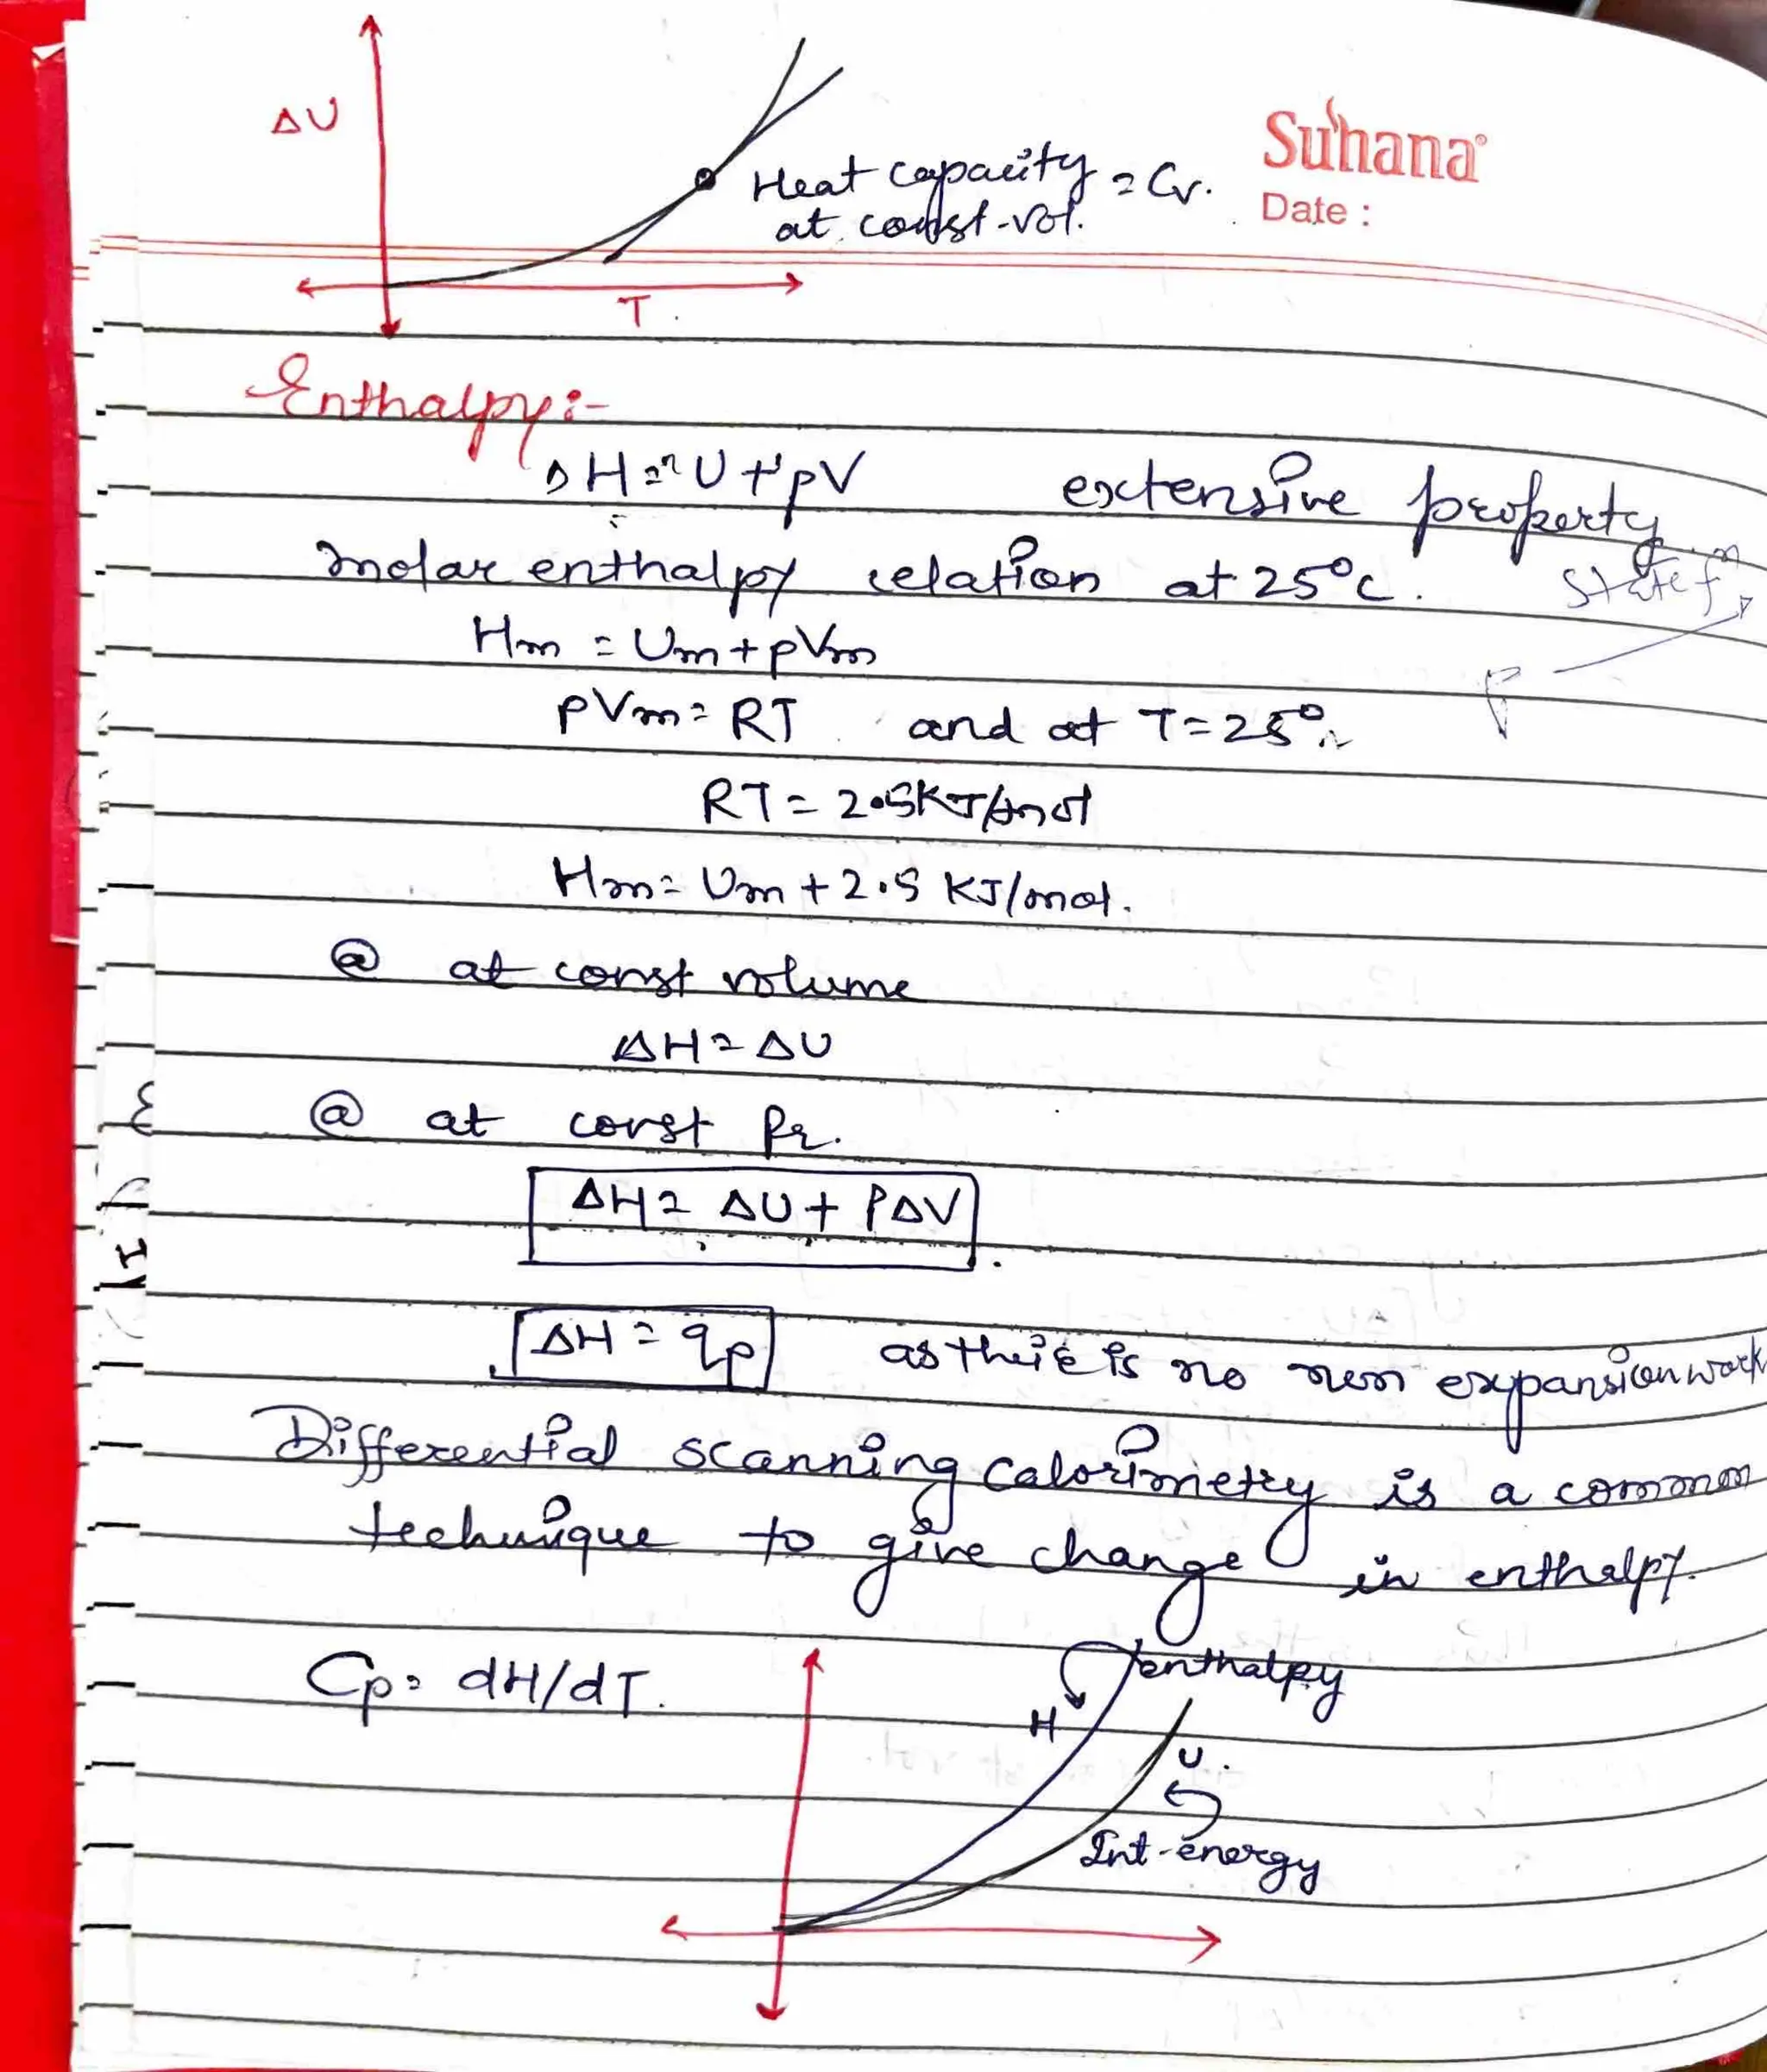 ΔU
Suhana
Heat capacity = Cv.
at const-vol.
Date :
T
Enthalpy:-
H = U + pV extensive property
state fn
molar enthalpy relation at 25°C.
Hm = Um + pVm
pVm = RT and at T = 25°
RT = 2.5KJ/mol
Hm = Um + 2.5 KJ/mol.
@ at const volume
ΔH = ΔU
@ at const Pr.
ΔH = ΔU + PΔV
ΔH = qp as there is no non expansion work
Differential scanning calorimetry is a common
technique to give change in enthalpy.
enthalpy
Cp = dH/dT.
H
U.
Int-energy